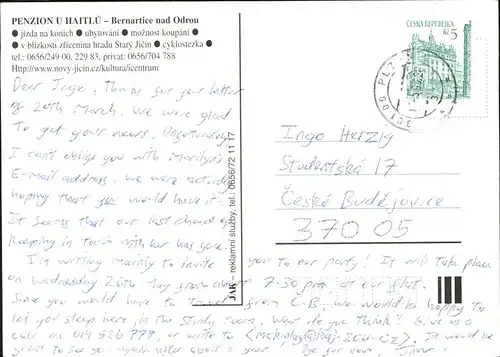 PENZION U HAITLŮ – Bernartice nad Odrou
● jízda na koních ● ubytování ● možnost koupání ●
● v blízkosti zřícenina hradu Starý Jičín ● cyklostezka ●
tel.: 0656/249 00, 229 83, privat: 0656/704 788
Http://www.novy-jicin.cz/kultura/icentrum
ČESKÁ REPUBLIKA
Kč 5
Dear Ingo, Thanks for your letter
of 20th March. We were glad
to get your news. Unfortunately
I can't oblige you with Marilyn's
E-mail address. We were actually
hoping that you would have it.
It seems that our last chance of
keeping in touch with her has gone.
I'm writing mainly to invite you to our party! It will take place
on Wednesday 26th May from about 7.30 pm, at our flat.
Since you would have to travel from Č.B. we would be happy to
let you sleep here, in the study room. What do you think? Give us a
call on 019 526 777, or write to
It would be
great to see you again after a year
JAK – reklamní služby, tel.: 0656/72 11 17
Ingo Herzig
Studentská 17
České Budějovice
370 05